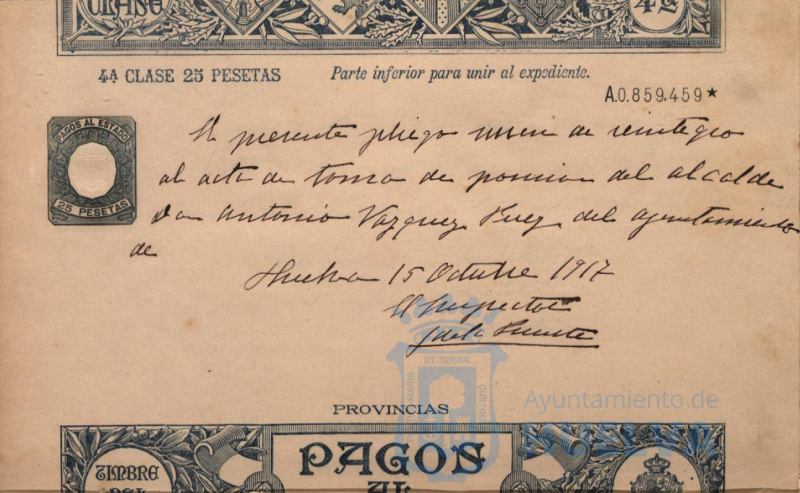 CLASE
4ª
4ª CLASE 25 PESETAS
Parte inferior para unir al expediente.
A.0.859.459★
PAGOS AL ESTADO
25 PESETAS
El presente pliego sirve de reintegro
al acta de toma de posesion del alcalde
don Antonio Vazquez Perez del ayuntamiento
de
Huelva 15 Octubre 1917
El Inspector
J de la Puente
PORTUS MARIS ET TERRÆ CUSTODIA
Ayuntamiento de
HUELVA
PROVINCIAS
TIMBRE
DEL
PAGOS
AL